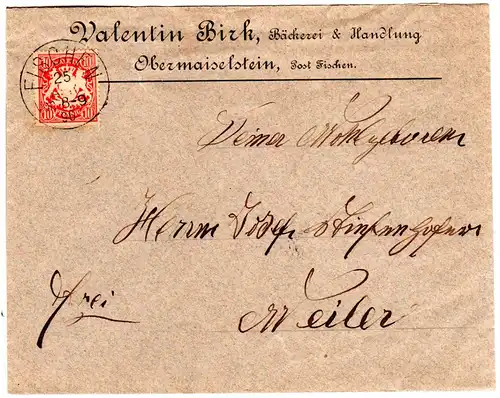 Valentin Birk, Bäckerei & Handlung
Obermaiselstein, Post Fischen.
FISCHEN
25
8-9
10 10
Seiner Wohlgeboren
Herrn Josef Stiefenhofer
frei
Weiler